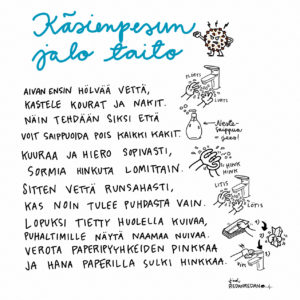 Käsienpesun
jalo taito
AIVAN ENSIN HÖLVÄÄ VETTÄ,
KASTELE KOURAT JA NAKIT.
NÄIN TEHDÄÄN SIKSI ETTÄ
VOIT SAIPPUOIDA POIS KAIKKI KAKIT.
KUURAA JA HIERO SOPIVASTI,
SORMIA HINKUTA LOMITTAIN.
SITTEN VETTÄ RUNSAHASTI,
KAS NOIN TULEE PUHDASTA VAIN.
LOPUKSI TIETTY HUOLELLA KUIVAA,
PUHALTIMILLE NÄYTÄ NAAMAA NUIVAA.
VEROTA PAPERIPYYHKEIDEN PINKKAA
JA HANA PAPERILLA SULKI HINKKAA.
LURTS
Neste-
saippua
jees!
HINK
HINK
LITIS
LÖTIS